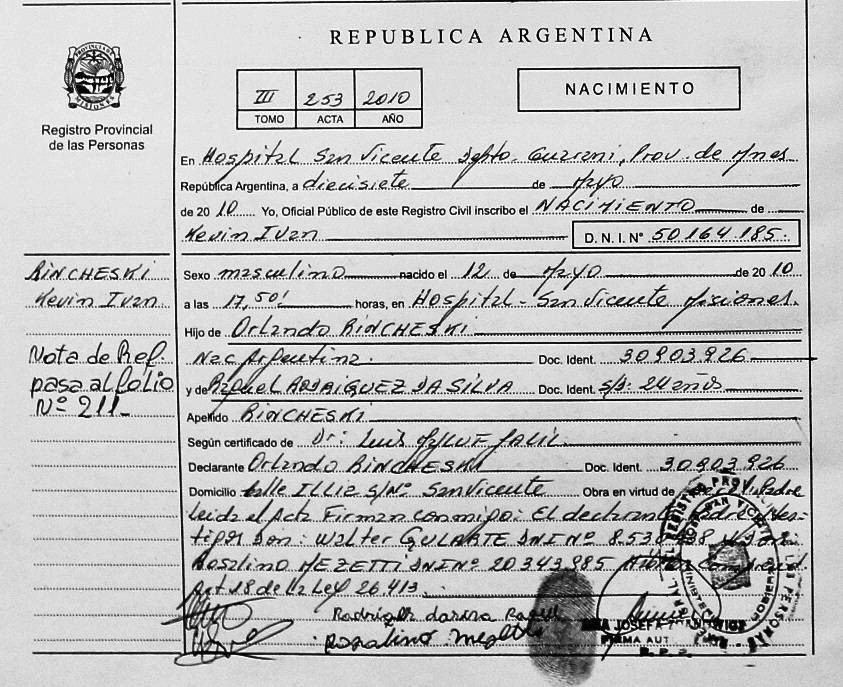 REPUBLICA ARGENTINA
PROVINCIA DE MISIONES
Registro Provincial
de las Personas
III 253 2010
TOMO ACTA AÑO
NACIMIENTO
En Hospital San Vicente Dpto. Guarani, Prov. de Mnes
República Argentina, a diecisiete de Mayo
de 2010 Yo, Oficial Público de este Registro Civil inscribo el NACIMIENTO de
Kevin Ivan D.N.I. N° 50.164.185.
RINCHESKI
Kevin Ivan
Nota de Ref.
pasa al folio
Nº 211
Sexo masculino nacido el 12 de Mayo de 2010
a las 17,50' horas, en Hospital - San Vicente Misiones.
Hijo de Orlando RINCHESKI
Nac Argentina. Doc. Ident. 30903926
y de Raquel RODRIGUEZ DA SILVA Doc. Ident. s/d: 24 años
Apellido RINCHESKI
Según certificado de Dr: Luis
Declarante Orlando RINCHESKI Doc. Ident. 30903926
Domicilio Calle ILLIA S/Nº San Vicente Obra en virtud de Padre
Leida el Acta Firman conmigo: El declarante Padre y tes-
tigos Don: Walter GULARTE DNI Nº
Rosalino MEZETTI DNI Nº 20343985
Art 18 de la Ley 26.413.
Rosalino
JOSEFA
FIRMA AUT
R. P. P.